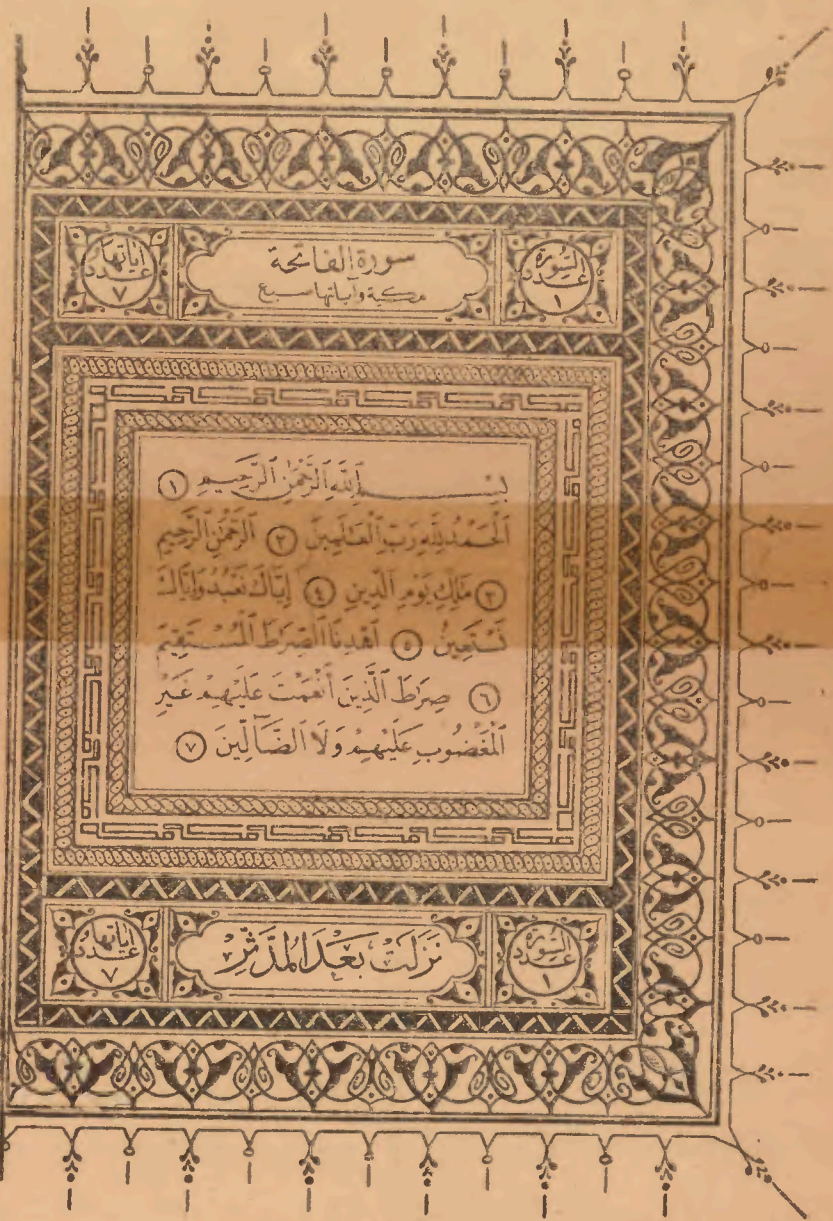 السورة
عدد
١
سورة الفاتحة
مكية وآياتها سبع
آياتها
عدد
٧
بِسْمِ ٱللَّهِ ٱلرَّحْمَٰنِ ٱلرَّحِيمِ ١
ٱلْحَمْدُ لِلَّهِ رَبِّ ٱلْعَٰلَمِينَ ٢ ٱلرَّحْمَٰنِ ٱلرَّحِيمِ
٣ مَٰلِكِ يَوْمِ ٱلدِّينِ ٤ إِيَّاكَ نَعْبُدُ وَإِيَّاكَ
نَسْتَعِينُ ٥ ٱهْدِنَا ٱلصِّرَٰطَ ٱلْمُسْتَقِيمَ
٦ صِرَٰطَ ٱلَّذِينَ أَنْعَمْتَ عَلَيْهِمْ غَيْرِ
ٱلْمَغْضُوبِ عَلَيْهِمْ وَلَا ٱلضَّآلِّينَ ٧
السورة
عدد
١
نَزَلَتْ بَعْدَ المُدَّثِّرِ
آياتها
عدد
٧